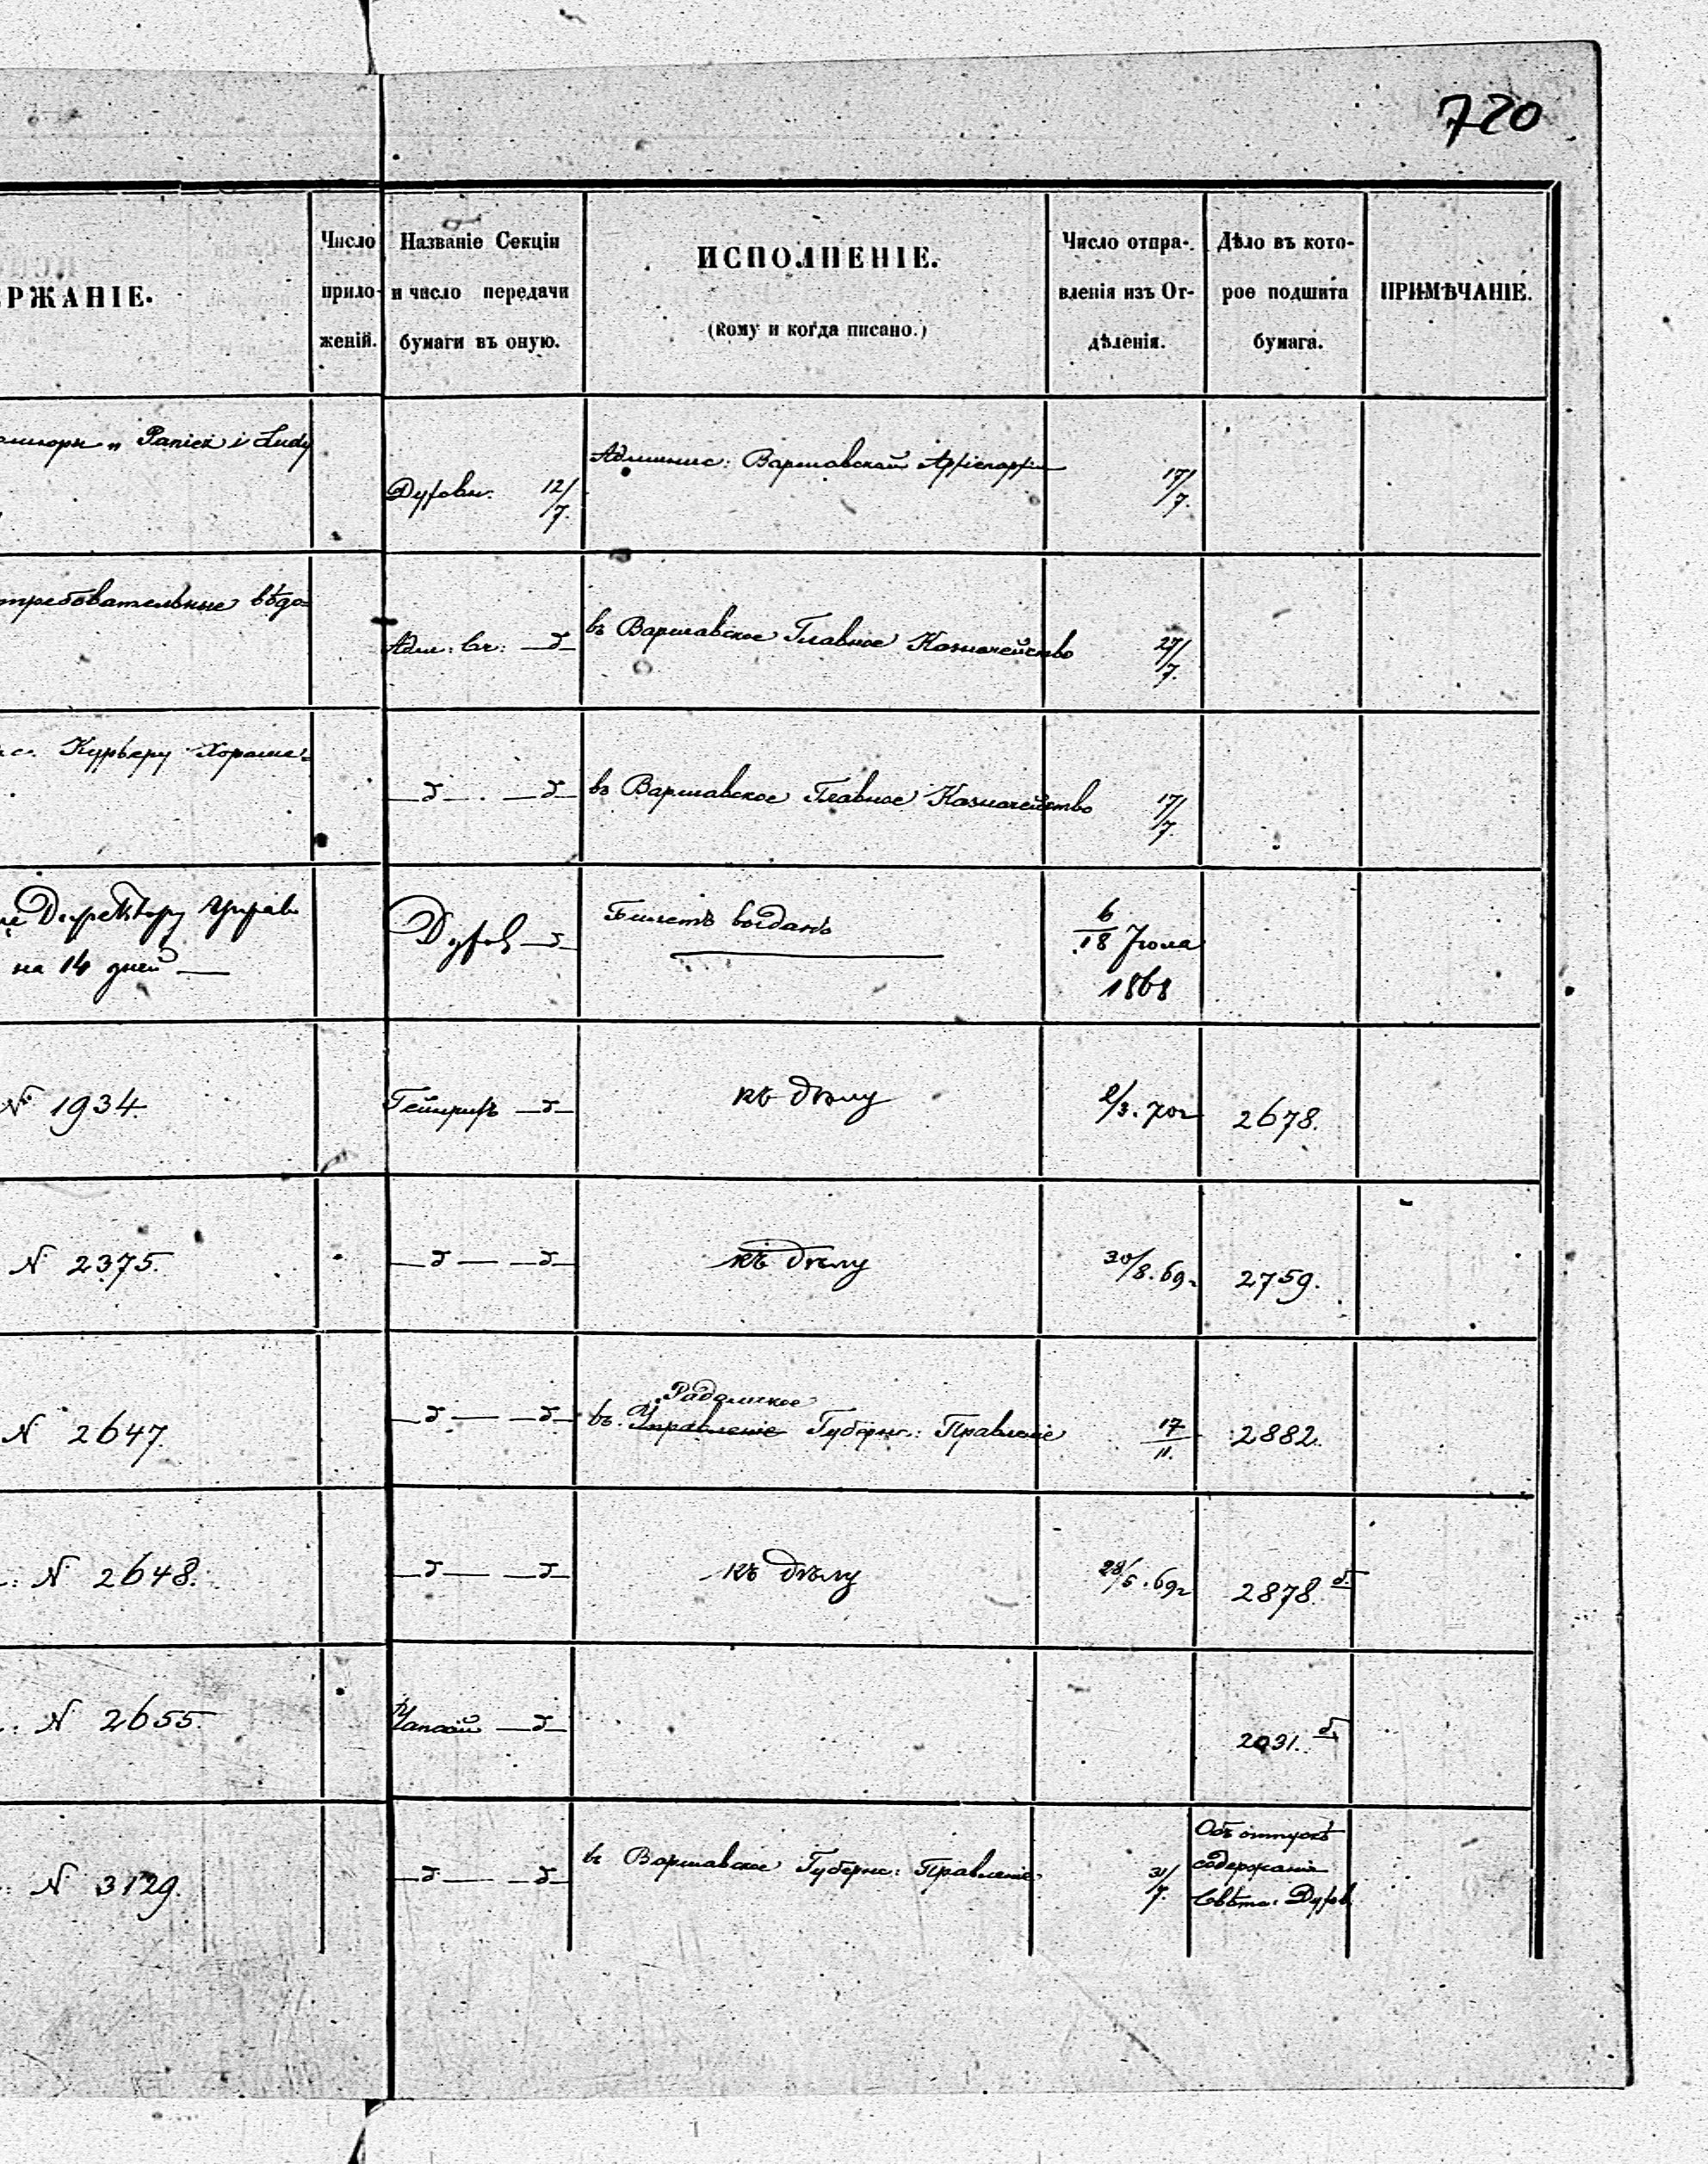 720
РЖАНІЕ.
Число приложеній.
Названіе Секціи и число передачи бумаги въ оную.
ИСПОЛНЕНІЕ.
(Кому и когда писано.)
Число отправленія изъ Отдѣленія.
Дѣло въ которое подшита бумага.
ПРИМѢЧАНІЕ.
„ Panicz i Ludy
Духовн. 12/7.
Админис: Варшавской Архіепархіи
17/7.
требовательные вѣдо=
Адм: сч: —д—
въ Варшавское Главное Казначейство
27/7.
Курьеру Хороше=
—д— . —д—
въ Варшавское Главное Казначейство
17/7.
Директору Управ.
на 14 дней —
Духов —д—
Билетъ выданъ
6/18 Іюля
1868
№ 1934.
—д—
къ дѣлу
2/3. 70г
2678.
N 2375.
—д— —д—
къ дѣлу
30/8. 69г
2759.
N 2647.
—д— —д—
Радомское
въ Управленіе Губернс: Правленіе
17/11.
2882.
: N 2648.
—д— —д—
къ дѣлу
28/5. 69г
2878. б.
: N 2655.
—д—
2031. б.
: N 3129.
—д— —д—
въ Варшавское Губернс: Правленіе
31/7.
Объ отпускѣ
содержанія
Свѣтс. Духов.